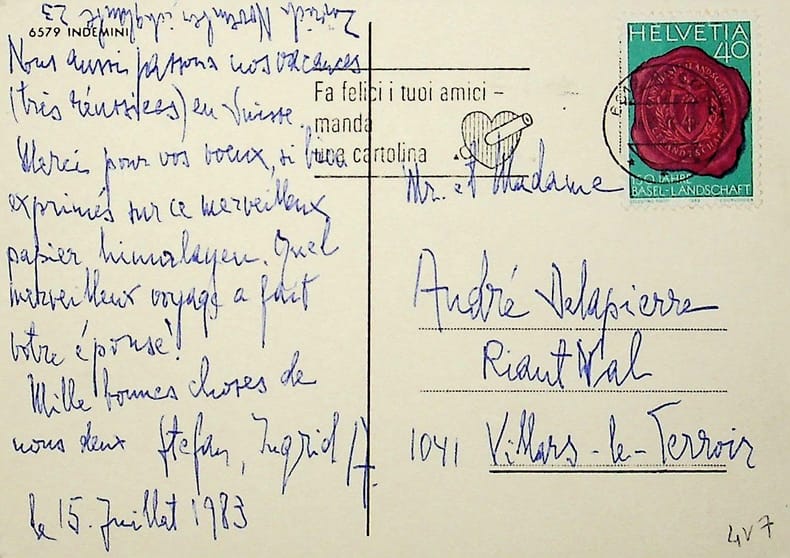 6579 INDEMINI
Nous aussi passons nos vacances
(très réussies) en Suisse.
Merci pour vos voeux, si bien
exprimés sur ce merveilleux
papier himalayen. Quel
merveilleux voyage a fait
votre épouse!
Mille bonnes choses de
nous deux Stefan, Ingrid
le 15. Juillet 1983
Fa felici i tuoi amici -
manda
una cartolina
HELVETIA
40
150 JAHRE
BASEL-LANDSCHAFT
Mr. et Madame
André Delapierre
Riant Val
1041 Villars-le-Terroir
4v7